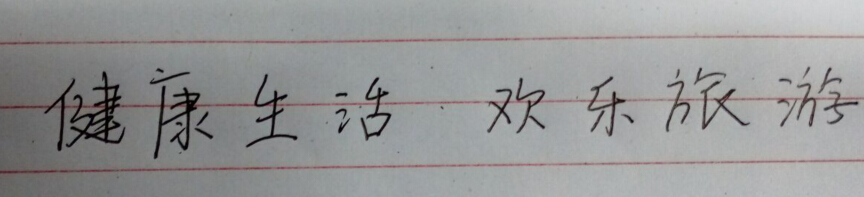 健康生活 欢乐旅游